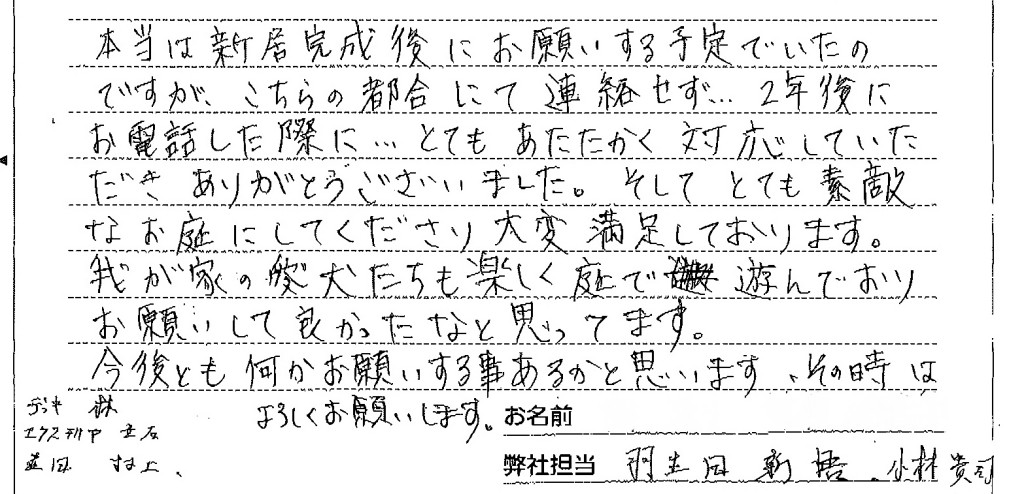 本当は新居完成後にお願いする予定でいたの
ですが、こちらの都合にて連絡せず…2年後に
お電話した際に…とてもあたたかく対応していた
だきありがとうございました。そしてとても素敵
なお庭にしてくださり大変満足しております。
我が家の愛犬たちも楽しく庭で遊んでおり
お願いして良かったなと思ってます。
今後とも何かお願いする事あるかと思います、その時は
よろしくお願いします。
デッキ 林
エクステリア 立石
造園 村上、
お名前
弊社担当 羽生田 新悟、小林 貴司